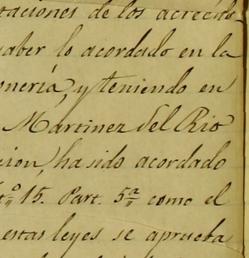 taciones de los acreedo
saber lo acordado en la
onería, y teniendo en
Martinez del Rio
cion, ha sido acordado
t.º 15. Part. 5.ª como el
estas leyes se aprueba